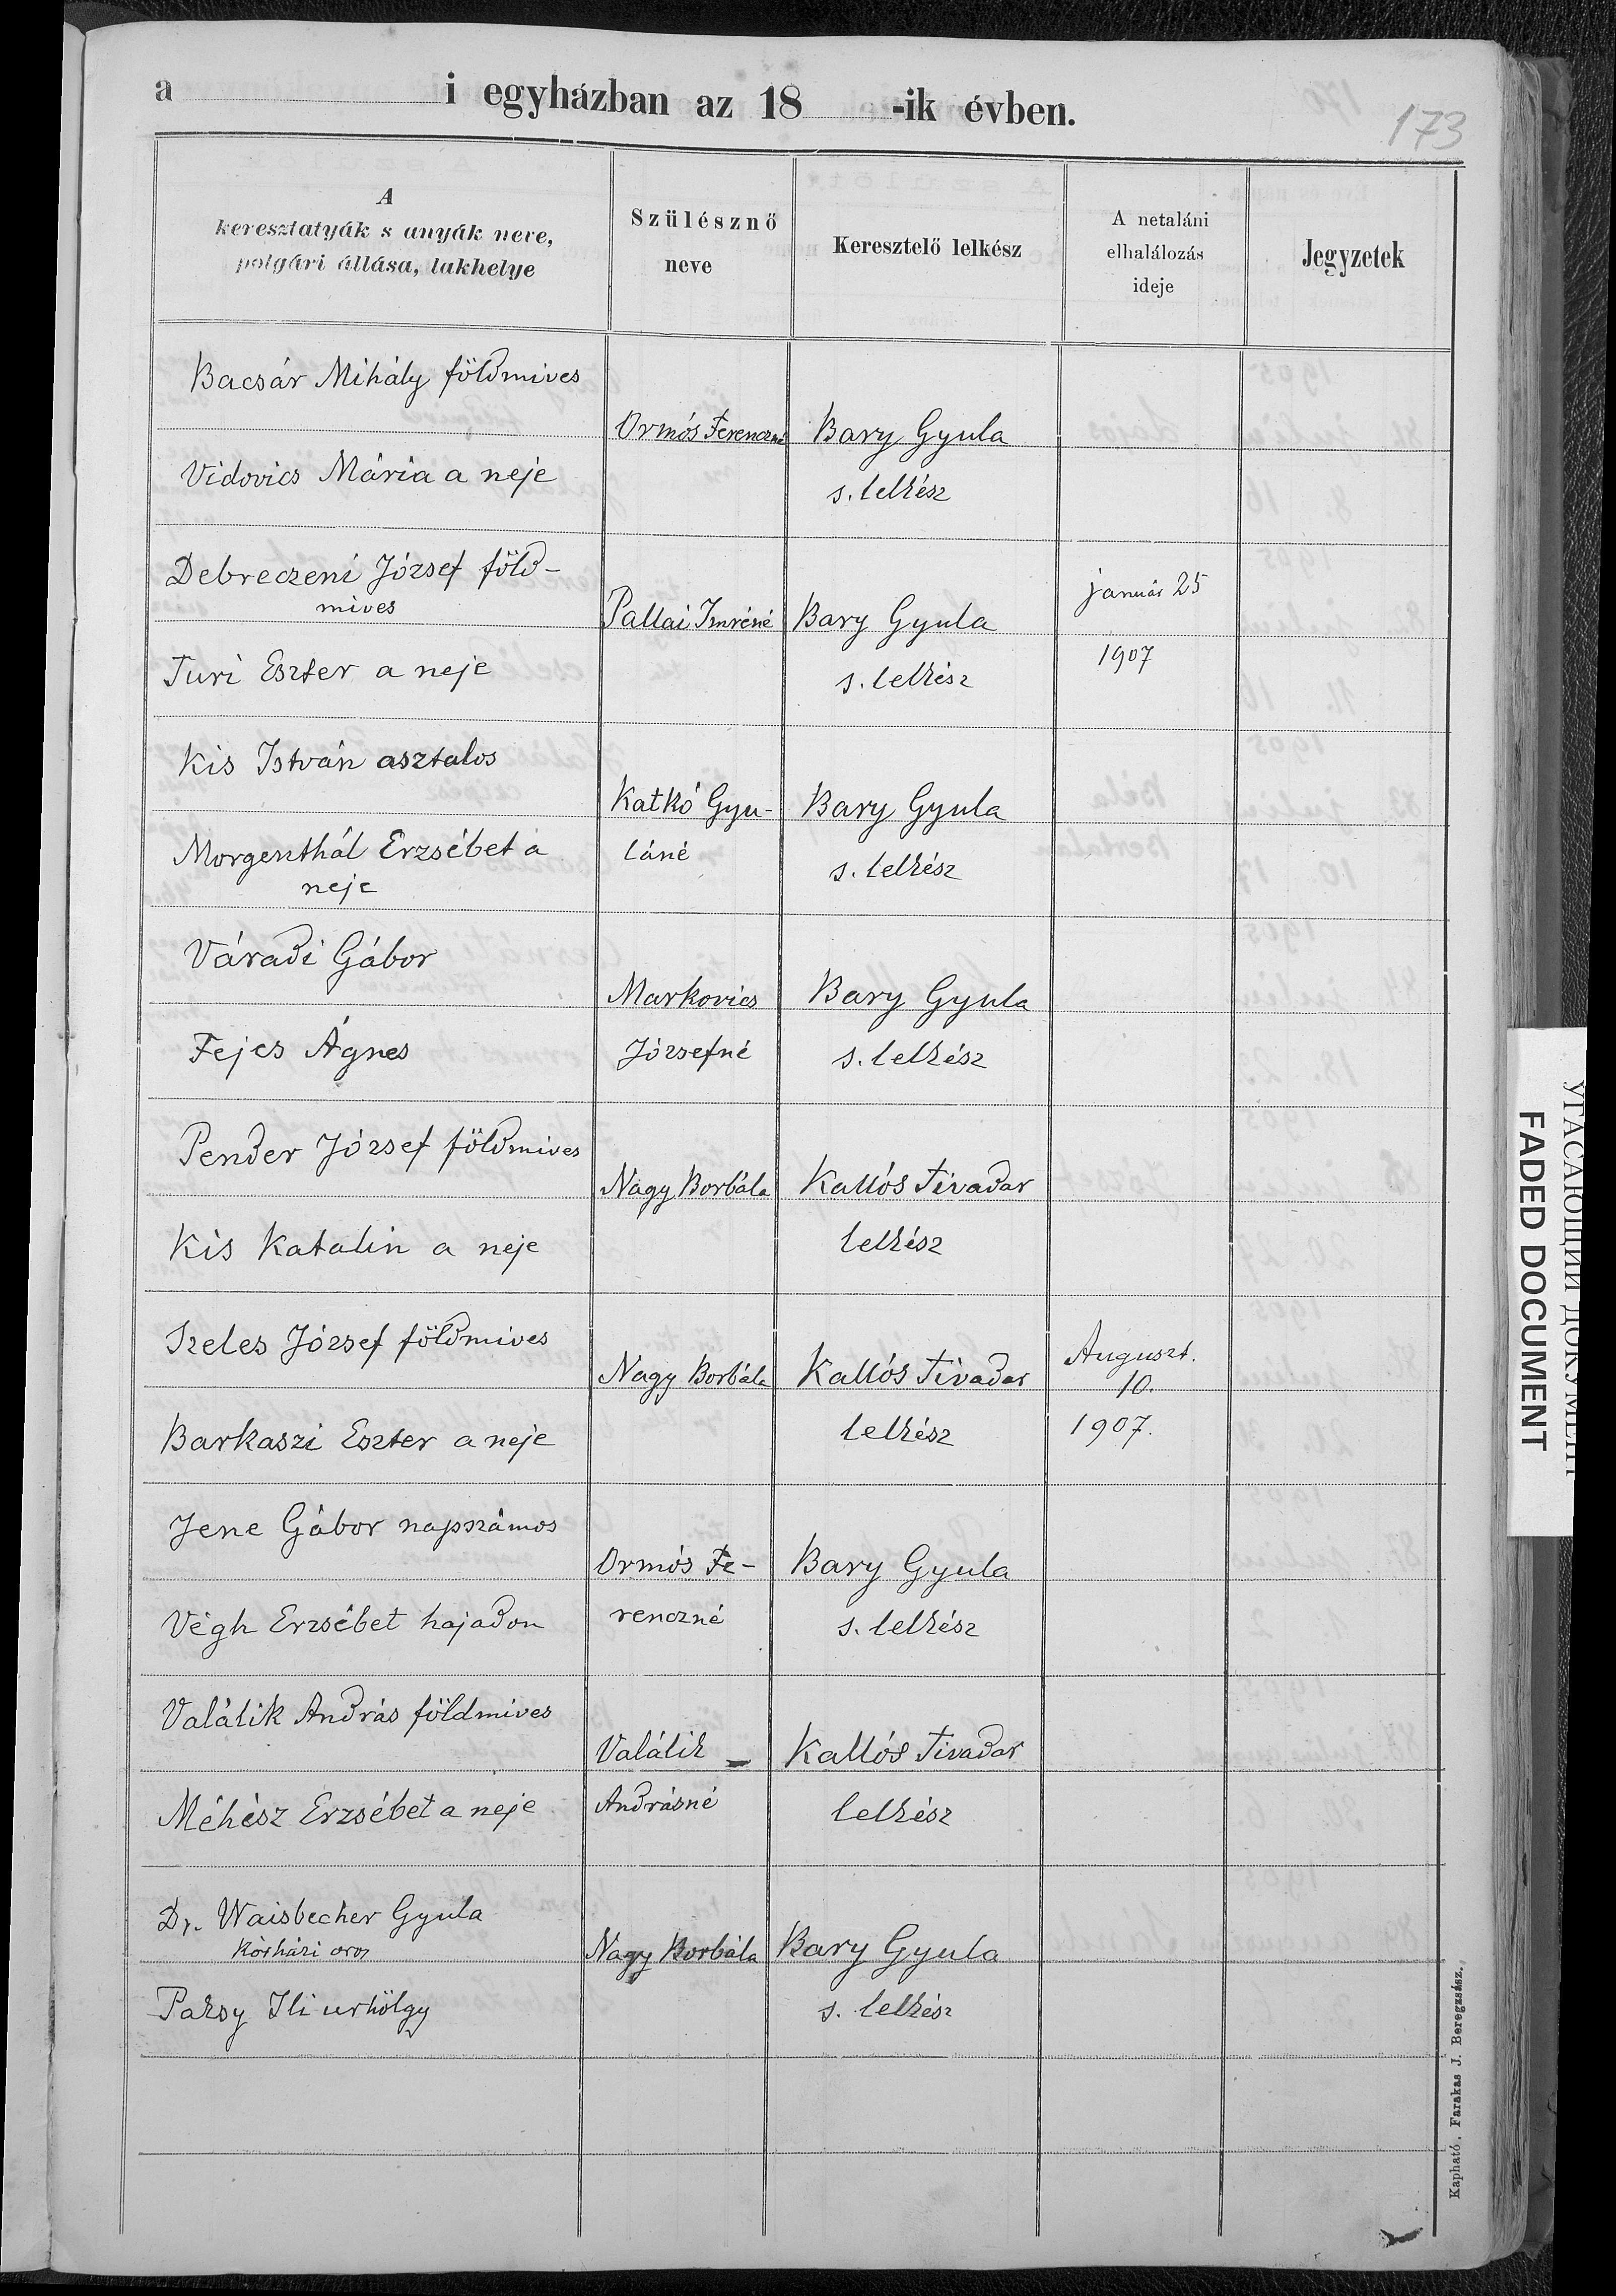 a i egyházban az 18 -ik évben.
173
A
keresztatyák s anyák neve,
polgári állása, lakhelye
Szülésznő
neve
Keresztelő lelkész
A netaláni
elhalálozás
ideje
Jegyzetek
Bacsár Mihály földmives
Vidovics Mária a neje
Ormós Ferenczné
Bary Gyula
s. lelkész
Debreczeni József föld-
mives
Turi Eszter a neje
Pallai Imréné
Bary Gyula
s. lelkész
január 25
1907
Kis István asztalos
Morgenthál Erzsébet a
neje
Katkó Gyu-
láné
Bary Gyula
s. lelkész
Váradi Gábor
Fejes Ágnes
Markovics
Józsefné
Bary Gyula
s. lelkész
Pender József földmives
Kis Katalin a neje
Nagy Borbála
Kallós Tivadar
lelkész
Szeles József földmives
Barkaszi Eszter a neje
Nagy Borbála
Kallós Tivadar
lelkész
Auguszt.
10.
1907.
Jene Gábor napszámos
Végh Erzsébet hajadon
Ormós Fe-
renczné
Bary Gyula
s. lelkész
Valálik András földmives
Méhész Erzsébet a neje
Valálik -
Andrásné
Kallós Tivadar
lelkész
Dr. Waisbecher Gyula
Kórházi oros
Paksy Ili urhölgy
Nagy Borbála
Bary Gyula
s. lelkész
Kapható. Farakas J. Beregzsász.
УГАСАЮЩИЙ ДОКУМЕНТ
FADED DOCUMENT